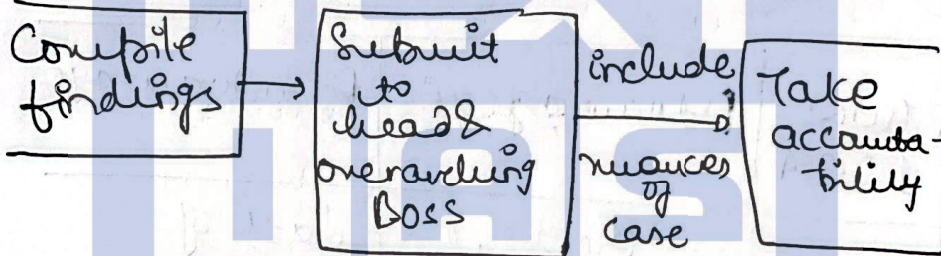 Compile
findings
Submit
to
head &
overarching
Boss
include
nuances
of
case
Take
accounta-
bility